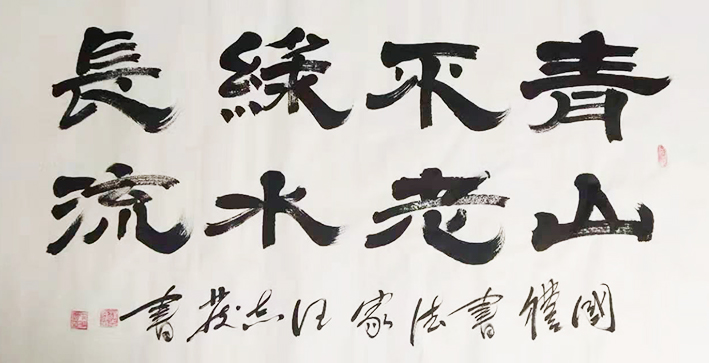 青山
不老
綠水
長流
國禮書法家汪志書